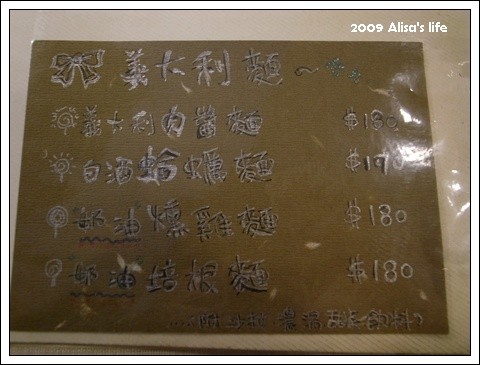 2009 Alisa's life
義大利麵～
義大利肉醬麵 $180
白酒蛤蠣麵 $190
"奶油"燻雞麵 $180
"奶油"培根麵 $180
....附 濃湯